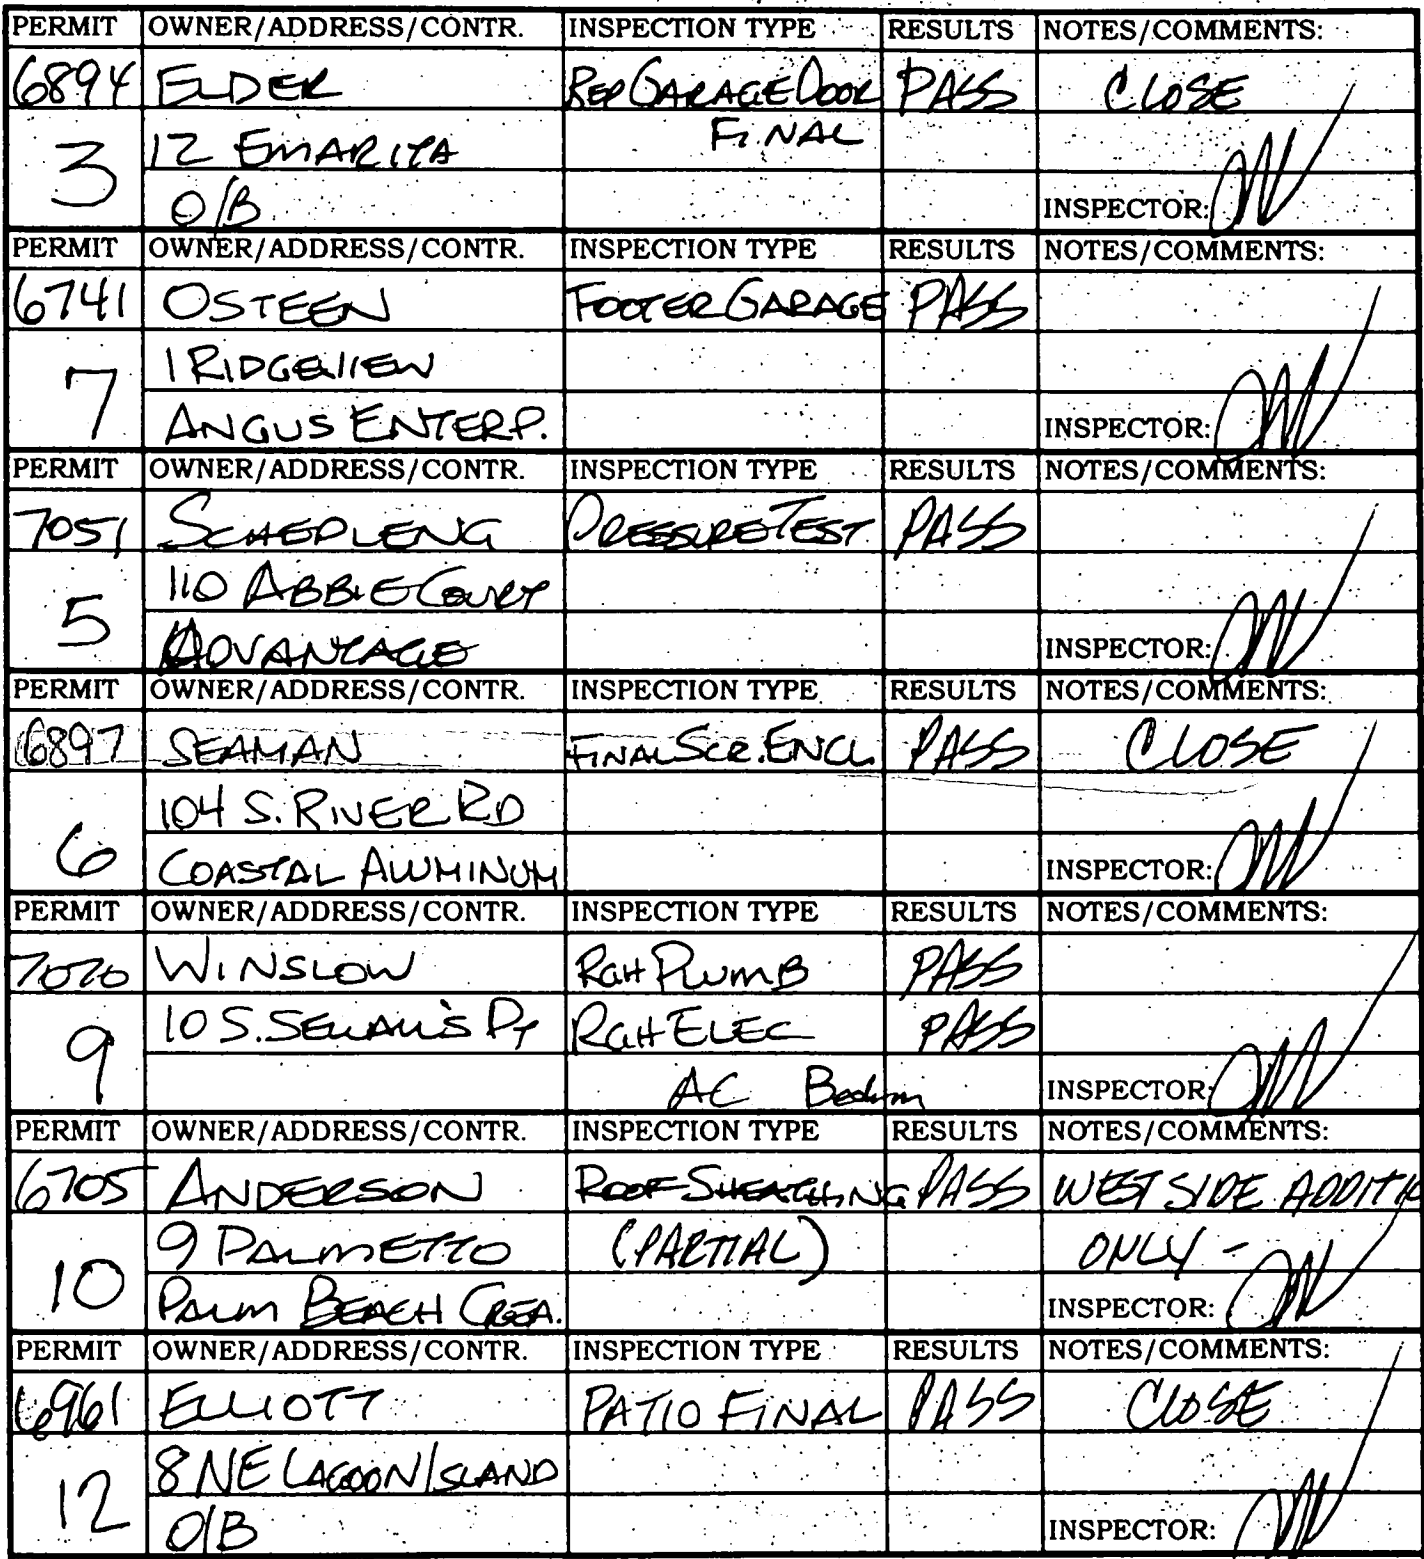 PERMIT OWNER/ADDRESS/CONTR. INSPECTION TYPE RESULTS NOTES/COMMENTS:
6894 ELDER REP GARAGE DOOR PASS CLOSE
3 12 EMARITA FINAL
O/B INSPECTOR:
PERMIT OWNER/ADDRESS/CONTR. INSPECTION TYPE RESULTS NOTES/COMMENTS:
6741 OSTEEN FOOTER GARAGE PASS
7 1 RIDGEVIEW
ANGUS ENTERP. INSPECTOR:
PERMIT OWNER/ADDRESS/CONTR. INSPECTION TYPE RESULTS NOTES/COMMENTS:
7051 SCHEPLENG PRESSURE TEST PASS
5 110 ABBIE COURT
ADVANTAGE INSPECTOR:
PERMIT OWNER/ADDRESS/CONTR. INSPECTION TYPE RESULTS NOTES/COMMENTS:
6897 SEAMAN FINAL SCR. ENCL. PASS CLOSE
6 104 S. RIVER RD
COASTAL ALUMINUM INSPECTOR:
PERMIT OWNER/ADDRESS/CONTR. INSPECTION TYPE RESULTS NOTES/COMMENTS:
7070 WINSLOW RGH PLUMB PASS
9 10 S. SEWALL'S PT RGH ELEC PASS
AC INSPECTOR:
PERMIT OWNER/ADDRESS/CONTR. INSPECTION TYPE RESULTS NOTES/COMMENTS:
6705 ANDERSON ROOF SHEATHING PASS WEST SIDE ADDITIO
10 9 PALMETTO (PARTIAL) ONLY -
PALM BEACH CREA. INSPECTOR:
PERMIT OWNER/ADDRESS/CONTR. INSPECTION TYPE RESULTS NOTES/COMMENTS:
6961 ELLIOTT PATIO FINAL PASS CLOSE
12 8 NE LAGOON ISLAND
O/B INSPECTOR: